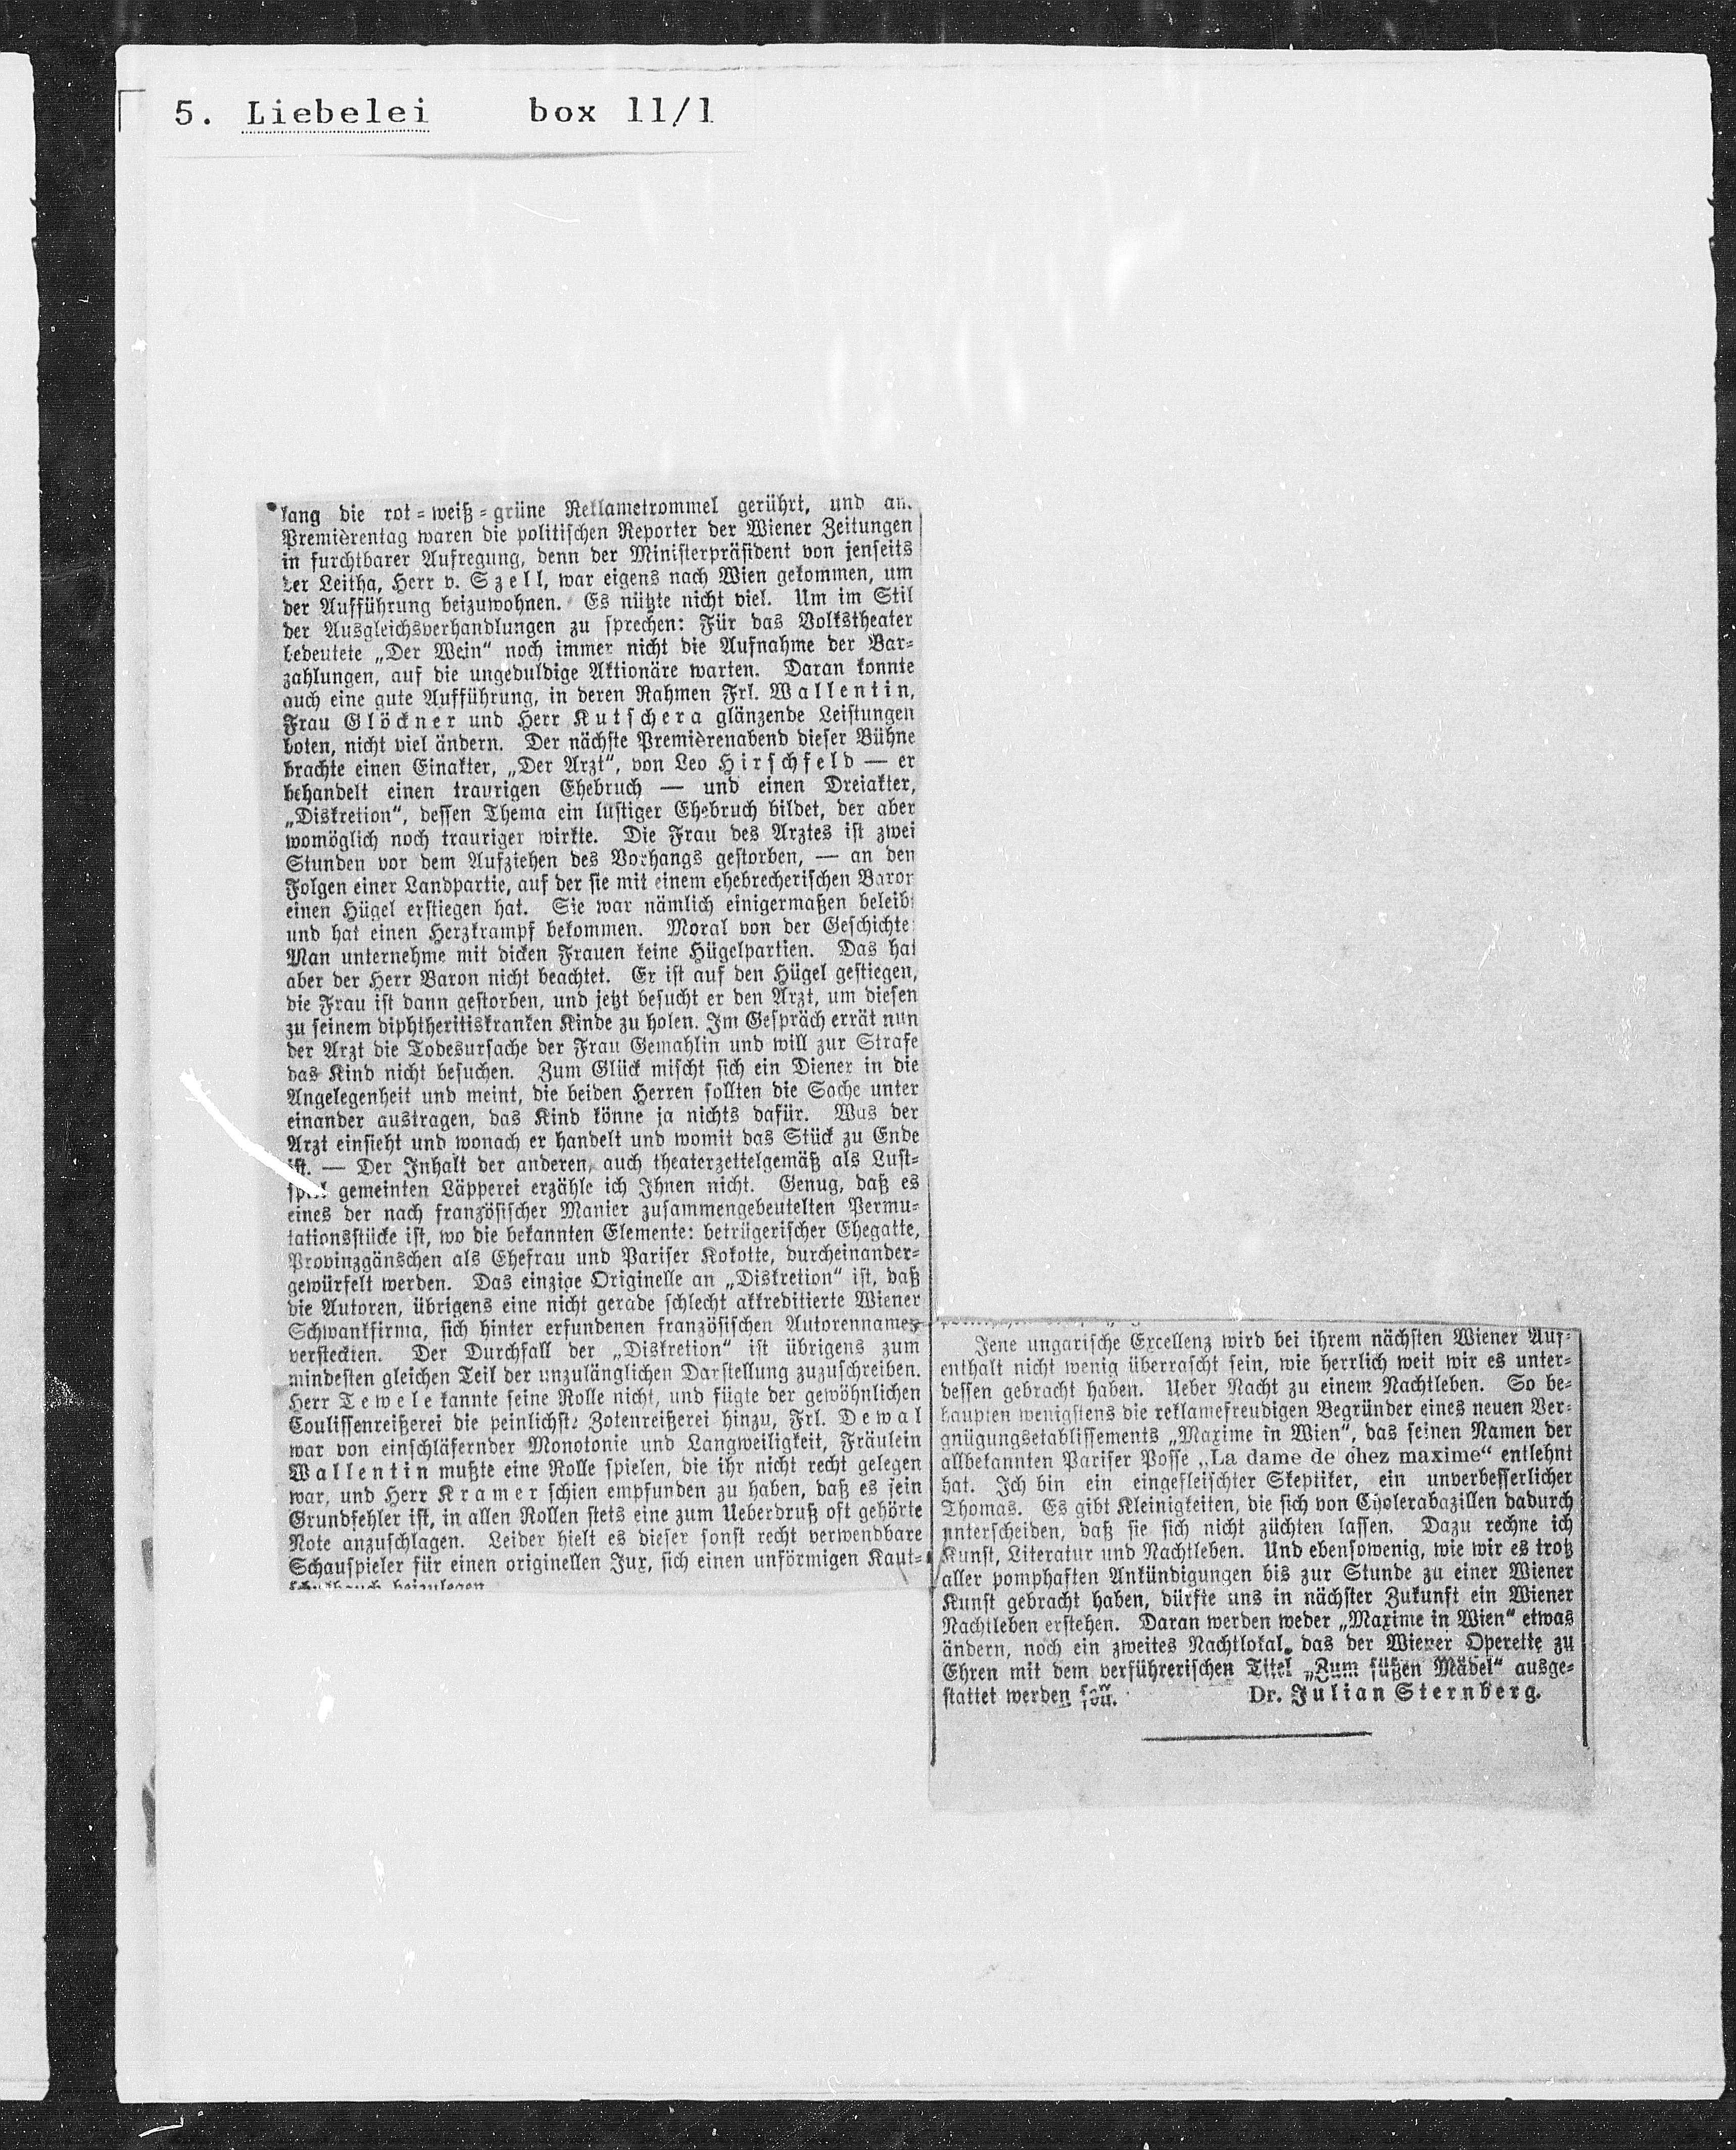 5. Liebelei box 11/1
lang die rot=weiß=grüne Reklametrommel gerührt, und am
Premièrentag waren die politischen Reporter der Wiener Zeitungen
in furchtbarer Aufregung, denn der Ministerpräsident von jenseits
der Leitha, Herr v. Szell, war eigens nach Wien gekommen, um
der Aufführung beizuwohnen. Es nützte nicht viel. Um im Stil
der Ausgleichsverhandlungen zu sprechen: Für das Volkstheater
bedeutete „Der Wein“ noch immer nicht die Aufnahme der Bar=
zahlungen, auf die ungeduldige Aktionäre warten. Daran konnte
auch eine gute Aufführung, in deren Rahmen Frl. Wallentin,
Frau Glöckner und Herr Kutschera glänzende Leistungen
boten, nicht viel ändern. Der nächste Premièrenabend dieser Bühne
brachte einen Einakter, „Der Arzt“, von Leo Hirschfeld — er
behandelt einen traurigen Ehebruch — und einen Dreiakter,
„Diskretion“, dessen Thema ein lustiger Ehebruch bildet, der aber
womöglich noch trauriger wirkte. Die Frau des Arztes ist zwei
Stunden vor dem Aufziehen des Vorhangs gestorben, — an den
Folgen einer Landpartie, auf der sie mit einem ehebrecherischen Baron
einen Hügel erstiegen hat. Sie war nämlich einigermaßen beleibt
und hat einen Herzkrampf bekommen. Moral von der Geschichte:
Man unternehme mit dicken Frauen keine Hügelpartien. Das hat
aber der Herr Baron nicht beachtet. Er ist auf den Hügel gestiegen,
die Frau ist dann gestorben, und jetzt besucht er den Arzt, um diesen
zu seinem diphtheritiskranken Kinde zu holen. Im Gespräch errät nun
der Arzt die Todesursache der Frau Gemahlin und will zur Strafe
das Kind nicht besuchen. Zum Glück mischt sich ein Diener in die
Angelegenheit und meint, die beiden Herren sollten die Sache unter
einander austragen, das Kind könne ja nichts dafür. Was der
Arzt einsieht und wonach er handelt und womit das Stück zu Ende
ist. — Der Inhalt der anderen, auch theaterzettelgemäß als Lust=
spiel gemeinten Läpperei erzähle ich Ihnen nicht. Genug, daß es
eines der nach französischer Manier zusammengebeutelten Permu=
tationsstücke ist, wo die bekannten Elemente: betrügerischer Ehegatte,
Provinzgänschen als Ehefrau und Pariser Kokotte, durcheinander=
gewürfelt werden. Das einzige Originelle an „Diskretion“ ist, daß
die Autoren, übrigens eine nicht gerade schlecht akkreditierte Wiener
Schwankfirma, sich hinter erfundenen französischen Autorennamen
versteckten. Der Durchfall der „Diskretion“ ist übrigens zum
mindesten gleichen Teil der unzulänglichen Darstellung zuzuschreiben.
Herr Tewele kannte seine Rolle nicht, und fügte der gewöhnlichen
Coulissenreißerei die peinlichste Zotenreißerei hinzu, Frl. Dewal
war von einschläfernder Monotonie und Langweiligkeit, Fräulein
Wallentin mußte eine Rolle spielen, die ihr nicht recht gelegen
war, und Herr Kramer schien empfunden zu haben, daß es sein
Grundfehler ist, in allen Rollen stets eine zum Ueberdruß oft gehörte
Note anzuschlagen. Leider hielt es dieser sonst recht verwendbare
Schauspieler für einen originellen Jux, sich einen unförmigen Kaut=
schukbauch beizulegen
Jene ungarische Excellenz wird bei ihrem nächsten Wiener Auf=
enthalt nicht wenig überrascht sein, wie herrlich weit wir es unter=
dessen gebracht haben. Ueber Nacht zu einem Nachtleben. So be=
haupten wenigstens die reklamefreudigen Begründer eines neuen Ver=
gnügungsetablissements „Maxime in Wien“, das seinen Namen der
allbekannten Pariser Posse „La dame de chez maxime“ entlehnt
hat. Ich bin ein eingefleischter Skeptiker, ein unverbesserlicher
Thomas. Es gibt Kleinigkeiten, die sich von Cholerabazillen dadurch
unterscheiden, daß sie sich nicht züchten lassen. Dazu rechne ich
Kunst, Literatur und Nachtleben. Und ebensowenig, wie wir es trotz
aller pomphaften Ankündigungen bis zur Stunde zu einer Wiener
Kunst gebracht haben, dürfte uns in nächster Zukunft ein Wiener
Nachtleben erstehen. Daran werden weder „Maxime in Wien“ etwas
ändern, noch ein zweites Nachtlokal, das der Wiener Operette zu
Ehren mit dem verführerischen Titel „Zum süßen Mädel“ ausge=
stattet werden soll. Dr. Julian Sternberg.